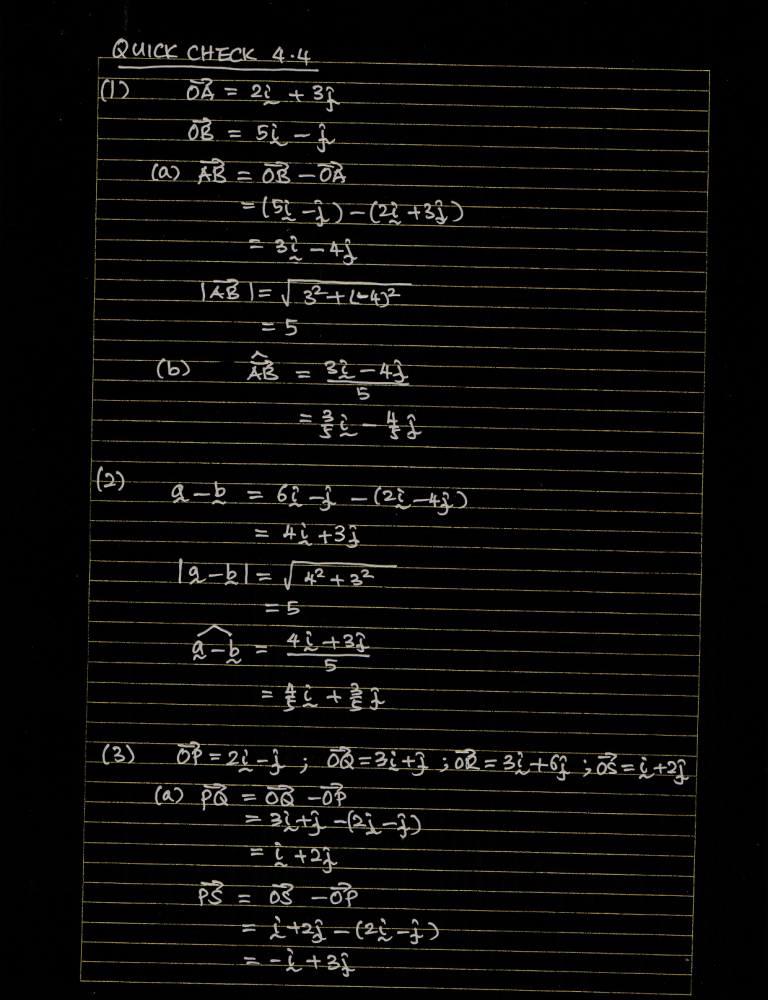 QUICK CHECK 4.4
(1) OA⃗ = 2i + 3j
OB⃗ = 5i - j
(a) AB⃗ = OB⃗ - OA⃗
= (5i - j) - (2i + 3j)
= 3i - 4j
|AB⃗| = √(3² + (-4)²)
= 5
(b) AB⃗̂ = (3i - 4j)/5
= 3/5 i - 4/5 j
(2) a - b = 6i - j - (2i - 4j)
= 4i + 3j
|a - b| = √(4² + 3²)
= 5
a - b̂ = (4i + 3j)/5
= 4/5 i + 3/5 j
(3) OP⃗ = 2i - j ; OQ⃗ = 3i + j ; OR⃗ = 3i + 6j ; OS⃗ = i + 2j
(a) PQ⃗ = OQ⃗ - OP⃗
= 3i + j - (2i - j)
= i + 2j
PS⃗ = OS⃗ - OP⃗
= i + 2j - (2i - j)
= -i + 3j